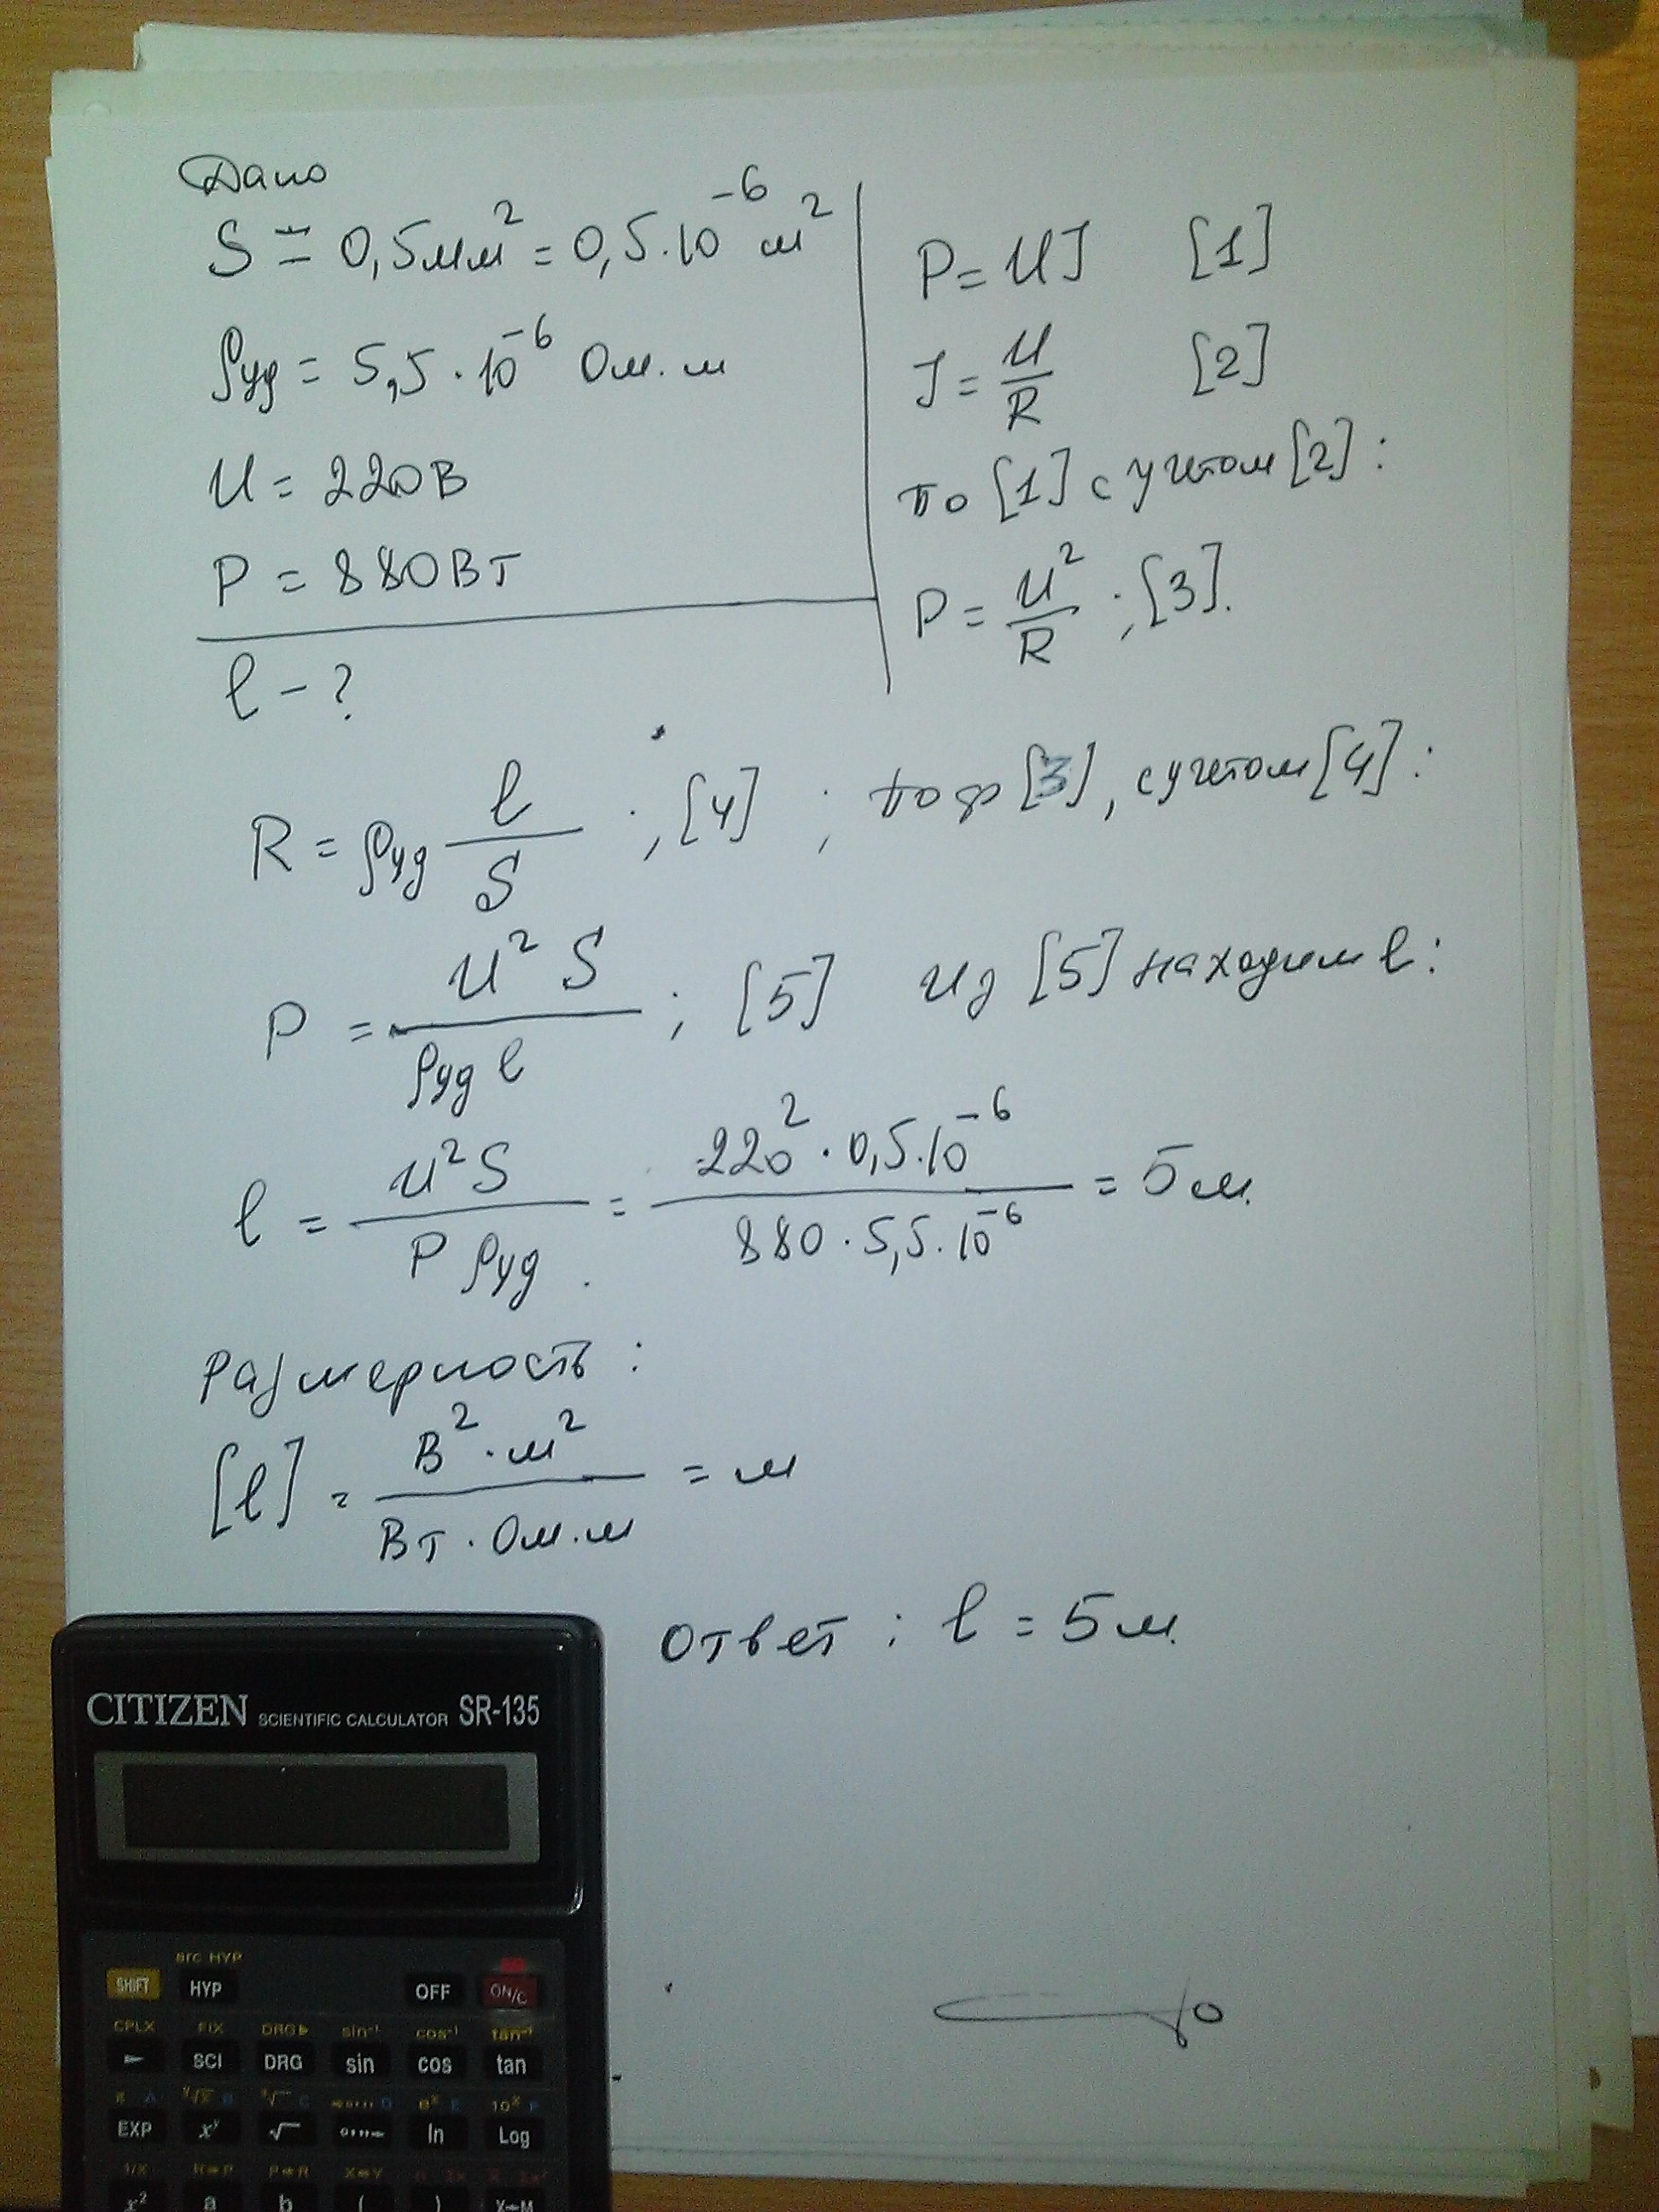 Дано
S = 0,5мм² = 0,5·10⁻⁶ м²
ρуд = 5,5·10⁻⁶ Ом·м
U = 220В
P = 880Вт
l - ?
P = UI [1]
I = U/R [2]
по [1] с учетом [2]:
P = U²/R ; [3].
R = ρуд l/S ; [4] ; по ф [3], с учетом [4]:
P = U² S/ρуд l ; [5] Из [5] находим l:
l = U²S/P ρуд = 220²·0,5·10⁻⁶/880·5,5·10⁻⁶ = 5м.
Размерность:
[l] = В²·м²/Вт·Ом·м = м
Ответ: l = 5м.
CITIZEN SCIENTIFIC CALCULATOR SR-135
arc HYP
SHIFT HYP OFF ON/C
CPLX FIX DRG▶ sin⁻¹ cos⁻¹ tan⁻¹
► SCI DRG sin cos tan
π A ʸ√x B ³√ C D eˣ E 10ˣ F
EXP xʸ √ o,,,← ln Log
1/X R→P P→R X↔Y n Σx
x² a b ( ) X→M